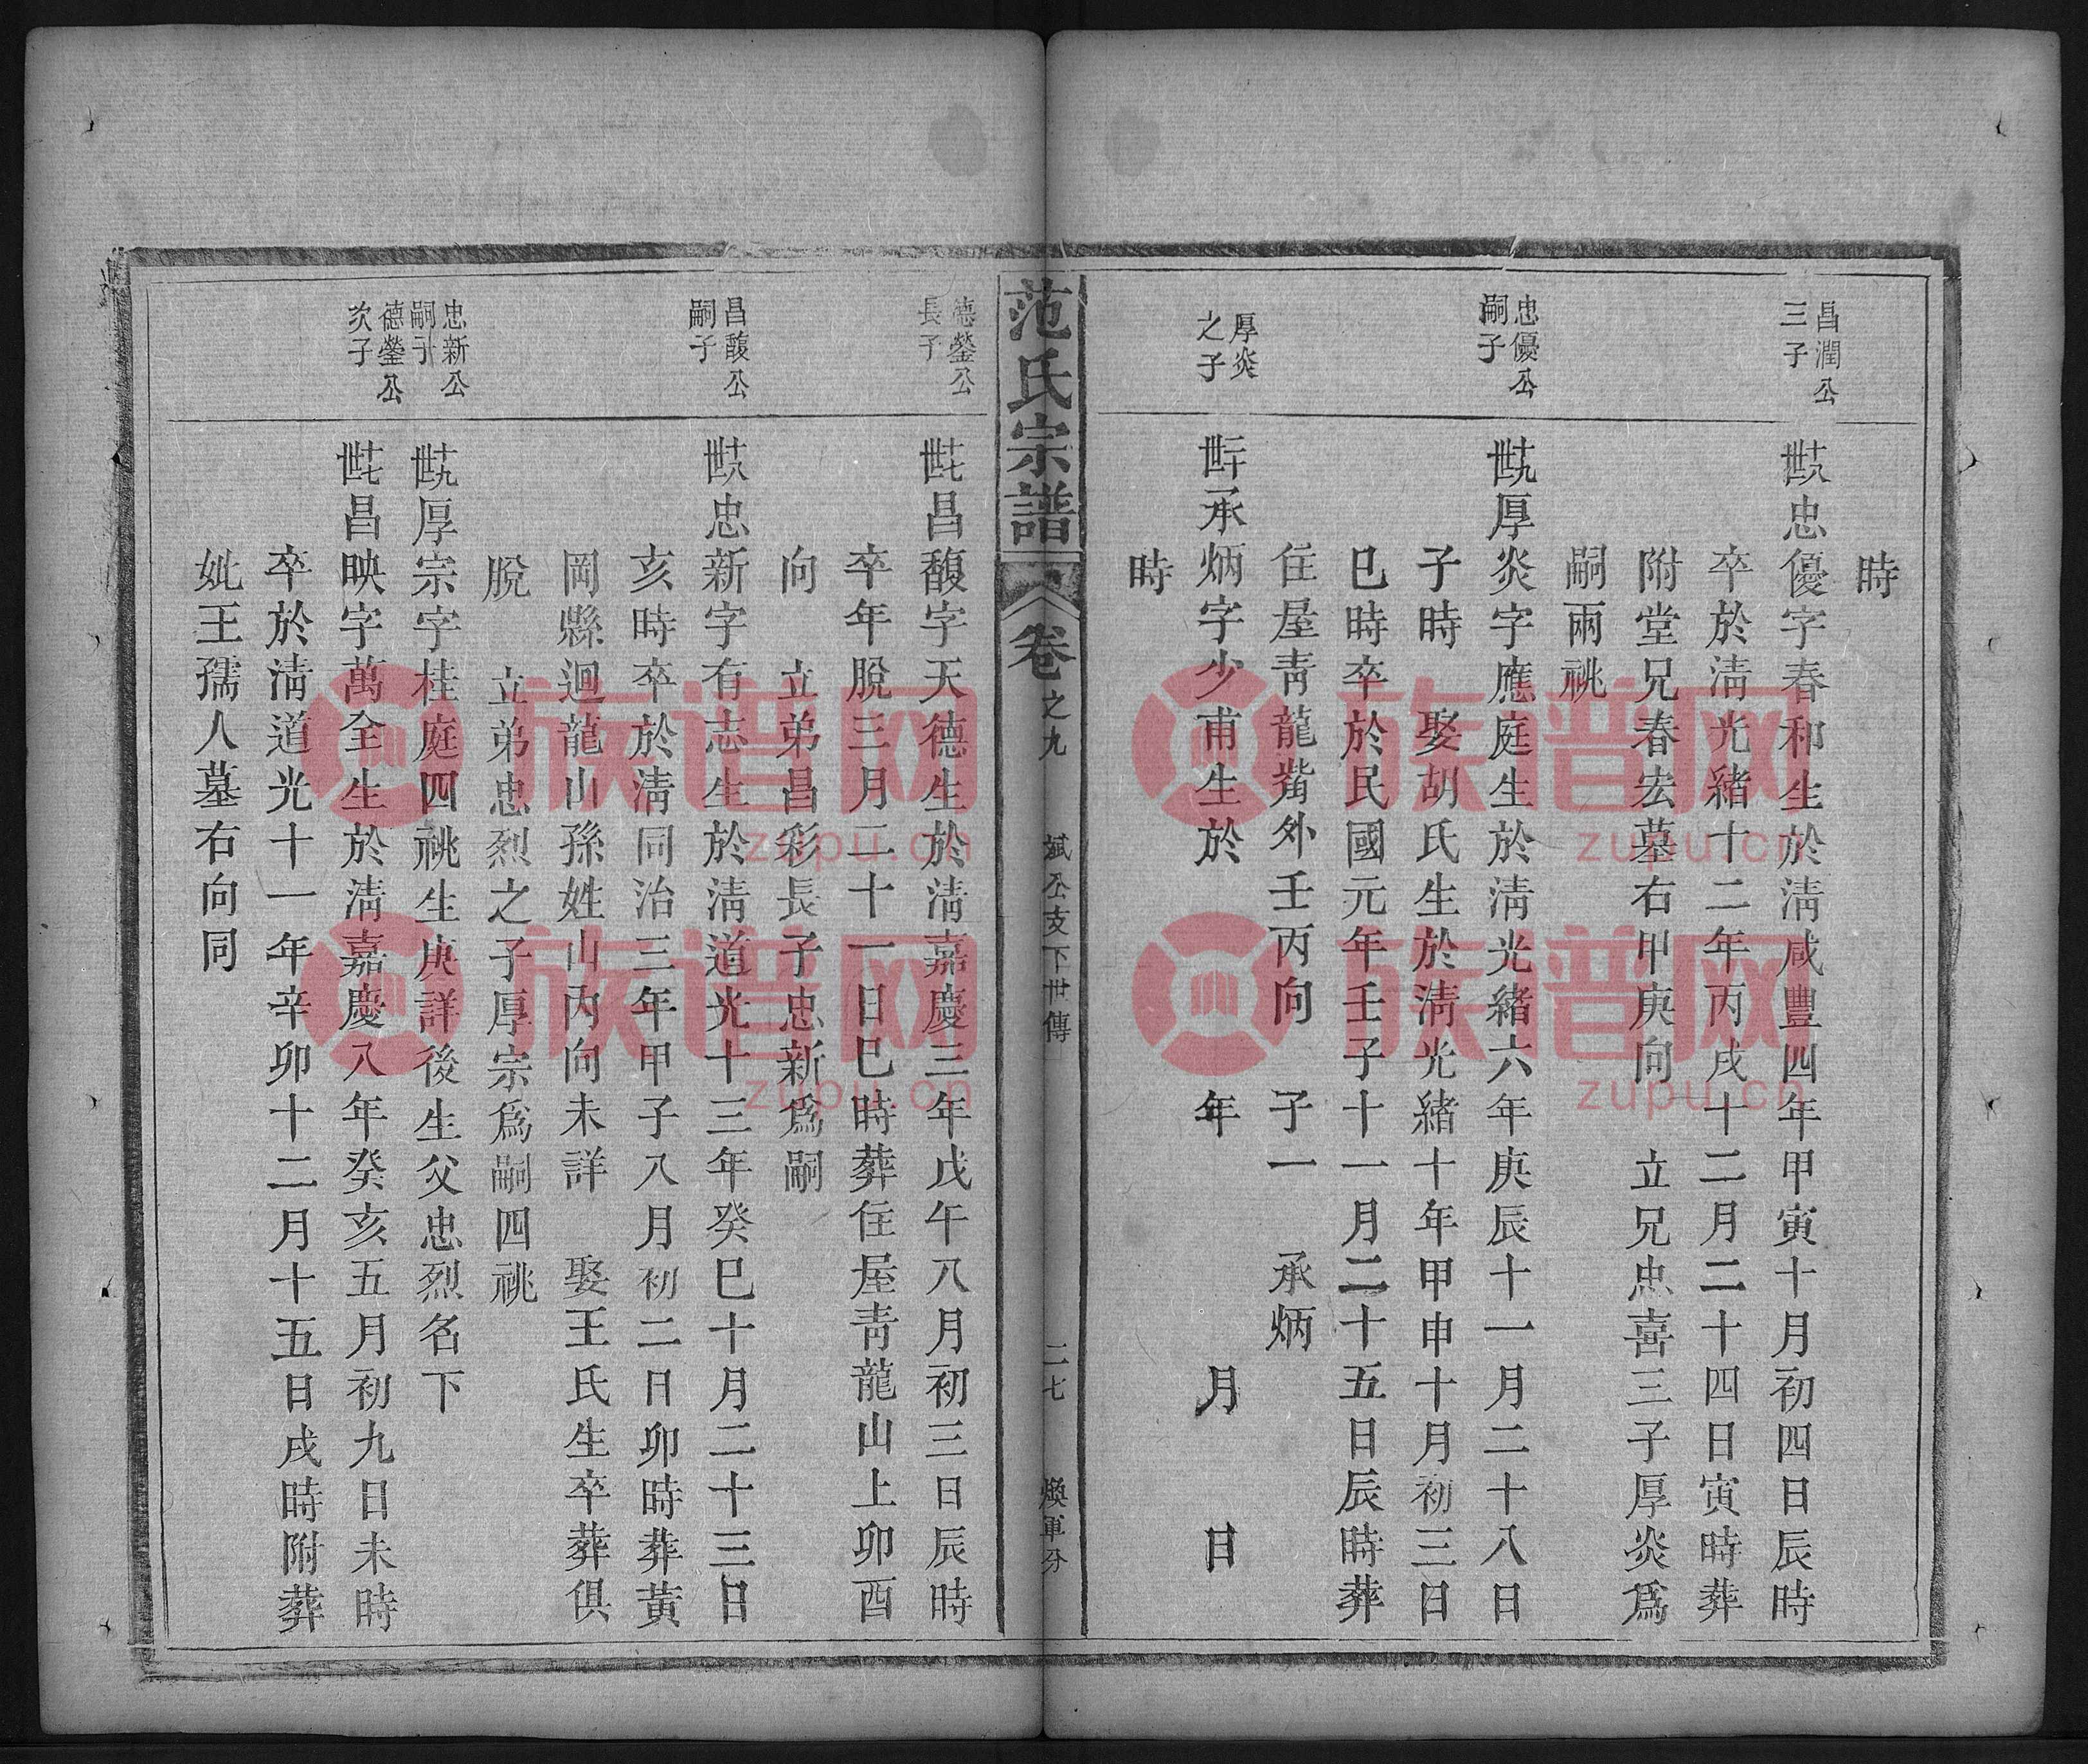 時
昌潤公
三子
十八世忠優字春和生於清咸豐四年甲寅十月初四日辰時
卒於清光緒十二年丙戌十二月二十四日寅時葬
附堂兄春宏墓右甲庚向　立兄忠喜三子厚炎爲
嗣兩祧
忠優公
嗣子
十九世厚炎字應庭生於清光緒六年庚辰十一月二十八日
子時　娶胡氏生於清光緒十年甲申十月初三日
巳時卒於民國元年壬子十一月二十五日辰時葬
住屋青龍嘴外壬丙向　子一　承炳
厚炎
之子
二十世承炳字少甫生於　年　月　日
時
范氏宗譜
卷之九
斌公支下世傳
二七
煥軍分
德鎣公
長子
十七世昌馥字天德生於清嘉慶三年戊午八月初三日辰時
卒年脫三月二十一日巳時葬住屋青龍山上卯酉
向　立弟昌彩長子忠新爲嗣
昌馥公
嗣子
十八世忠新字有志生於清道光十三年癸巳十月二十三日
亥時卒於清同治三年甲子八月初二日卯時葬黃
岡縣迴龍山孫姓山丙向未詳　娶王氏生卒葬俱
脫　立弟忠烈之子厚宗爲嗣四祧
忠新公
嗣子
十九世厚宗字桂庭四祧生庚詳後生父忠烈名下
德鎣公
次子
十七世昌映字萬全生於清嘉慶八年癸亥五月初九日未時
卒於清道光十一年辛卯十二月十五日戌時附葬
妣王孺人墓右向同
族譜网
zupu.cn
族譜网
zupu.cn
族譜网
zupu.cn
族譜网
zupu.cn